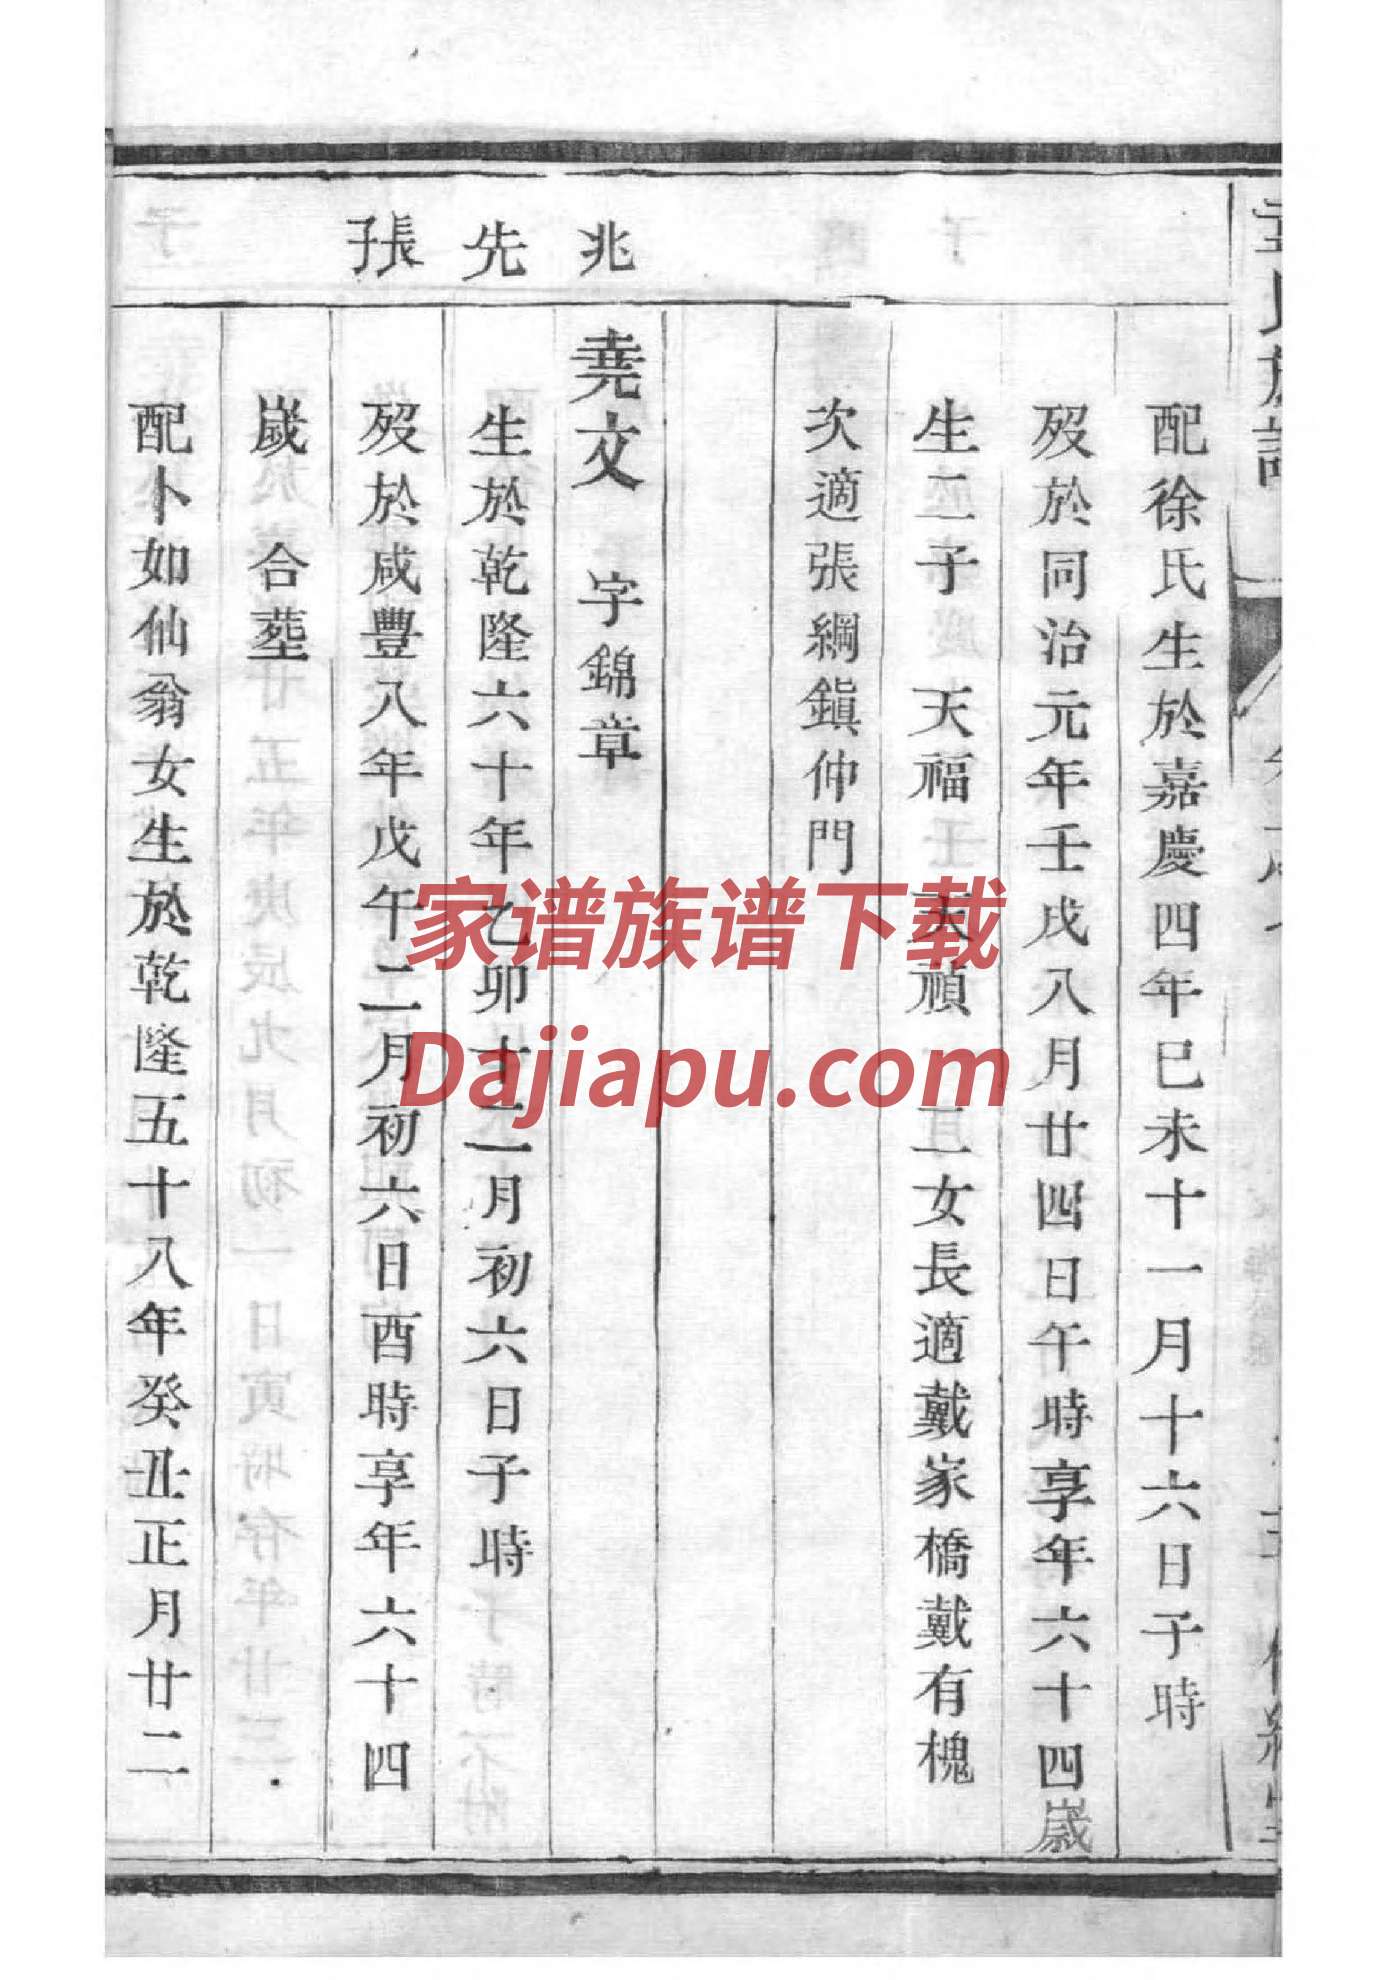 配徐氏生於嘉慶四年巳未十一月十六日子時
歿於同治元年壬戌八月廿四日午時享年六十四歲
生二子 天福 天禎 二女長適戴家橋戴有槐
次適張綱鎮仲門
兆
堯文 字錦章
先
生於乾隆六十年乙卯十二月初六日子時
張
歿於咸豐八年戊午二月初六日酉時享年六十四
歲 合墓
配卜如仙翁女生於乾隆五十八年癸丑正月廿二
家谱族谱下载
Dajiapu.com